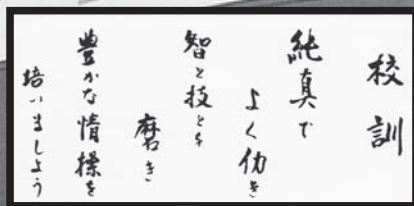 校訓
純真で
よく働き
智と技とを
磨き
豊かな情操を
培いましよう